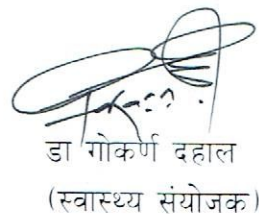 डा गोकर्ण दहाल
(स्वास्थ्य संयोजक)